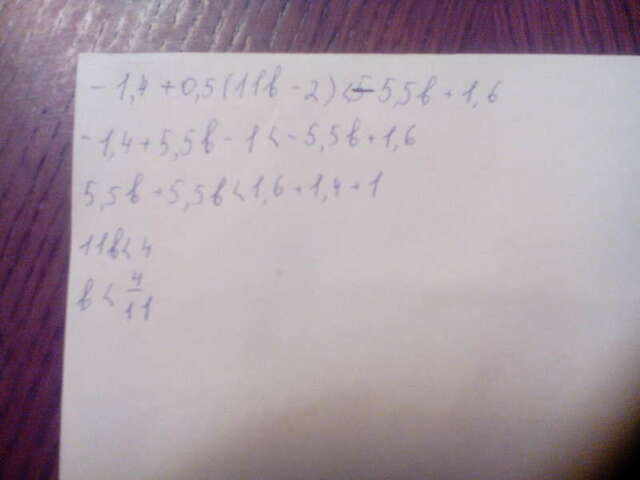 -1,4+0,5(11в-2)<-5,5в+1,6
-1,4+5,5в-1<-5,5в+1,6
5,5в+5,5в<1,6+1,4+1
11в<4
в<4/11